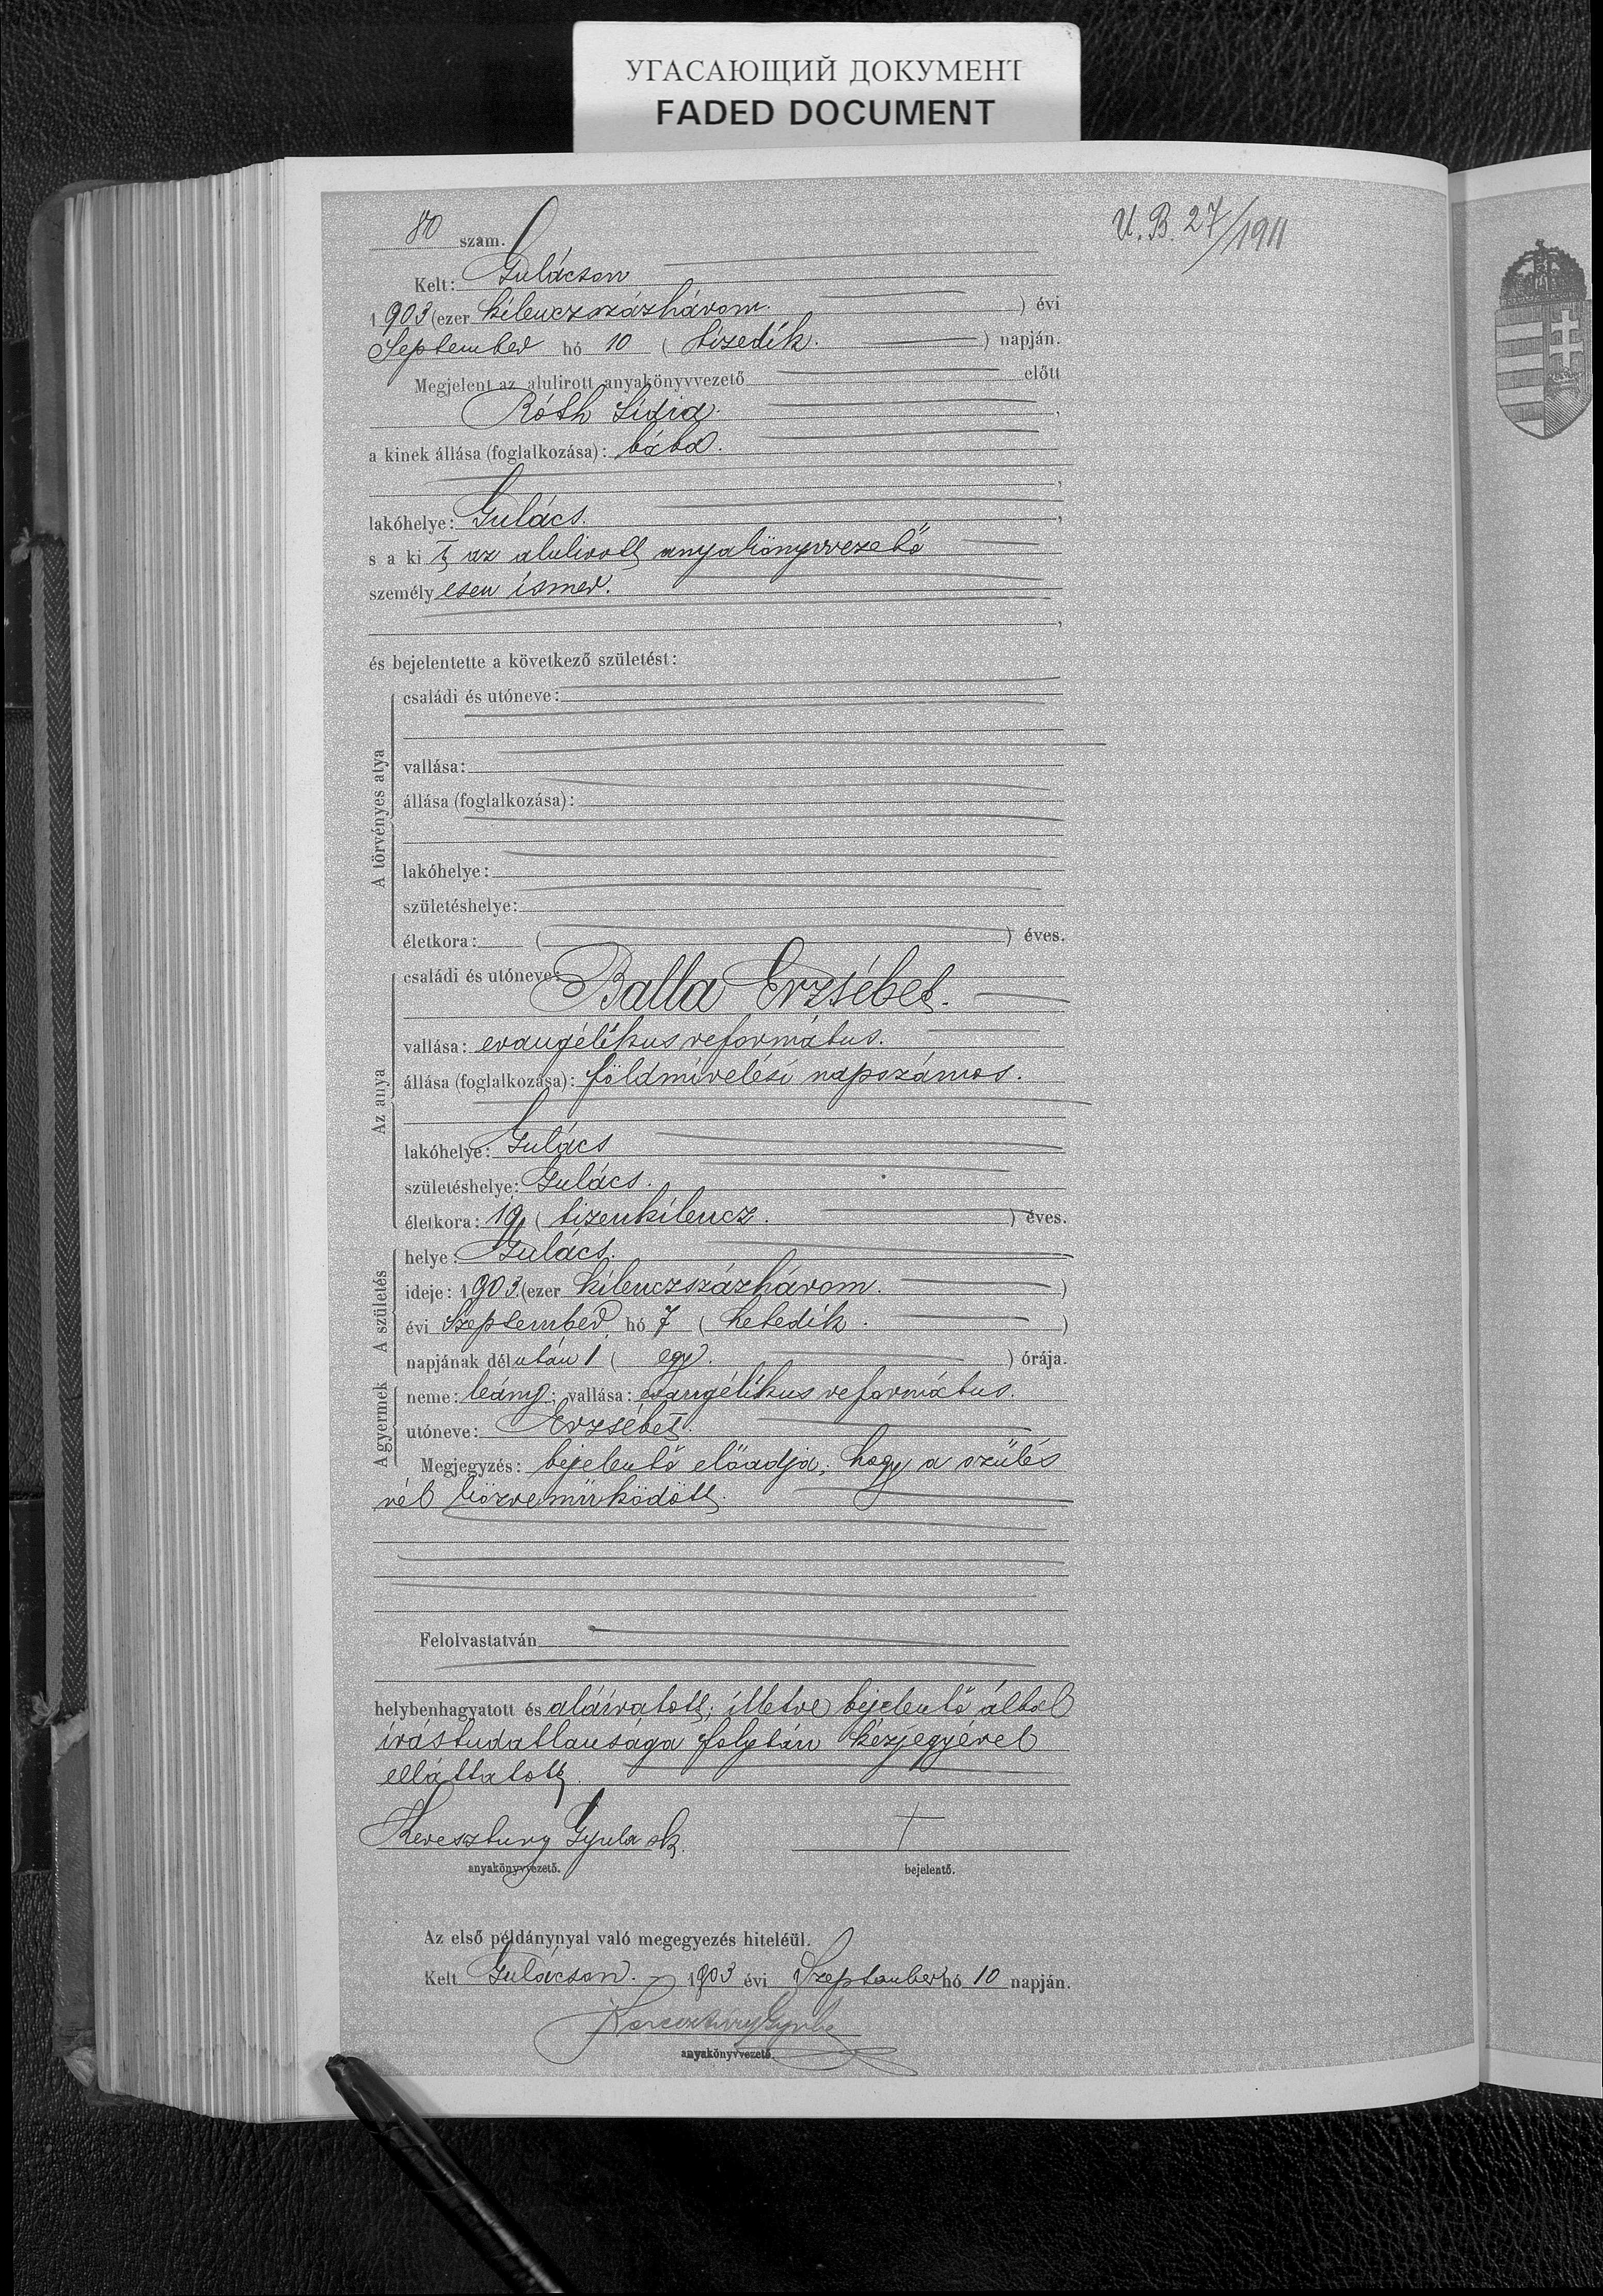 УГАСАЮЩИЙ ДОКУМЕНТ
FADED DOCUMENT
80 szám.
U. B. 27/1911
Kelt: Gulácson
1903 (ezer kilenczszázhárom. ) évi
September hó 10 ( tizedik. ) napján.
Megjelent az alulirott anyakönyvvezető előtt
Róth Lidia.
a kinek állása (foglalkozása): bába.
lakóhelye: Gulács.
s a kit az alulirott anyakönyvvezető
személyesen ismer.
és bejelentette a következő születést:
A törvényes atya
családi és utóneve:
vallása:
állása (foglalkozása):
lakóhelye:
születéshelye:
életkora: ( ) éves.
Az anya
családi és utóneve: Balla Erzsébet.
vallása: evangélikus református.
állása (foglalkozása): földmívelési napszámos.
lakóhelye: Gulács
születéshelye: Gulács.
életkora: 19 ( tizenkilencz. ) éves.
A születés
helye: Gulács.
ideje: 1903 (ezer kilenczszázhárom. )
évi Szeptember hó 7 ( hetedik. )
napjának délután 1 ( egy. ) órája.
A gyermek
neme: leány; vallása: evangélikus református.
utóneve: Erzsébet.
Megjegyzés: bejelentő előadja, hogy a szülés
nél közreműködött.
Felolvastatván
helybenhagyatott és aláiratott; illetve bejelentő által
irástudatlansága folytán kézjegyével
elláttatott.
Keresztury Gyula sk.
†
anyakönyvvezető.
bejelentő.
Az első példánynyal való megegyezés hiteléül.
Kelt Gulácson. 1903 évi Szeptember hó 10 napján.
Keresztury Gyula
anyakönyvvezető.